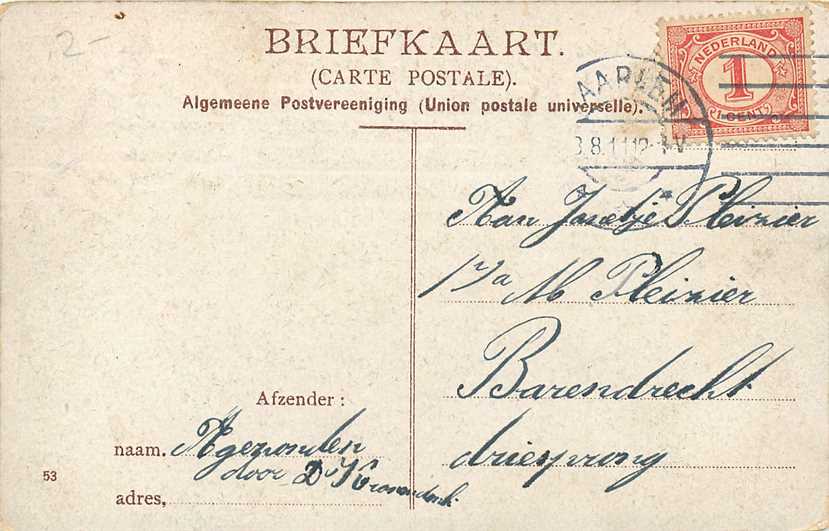 2-
BRIEFKAART.
(CARTE POSTALE).
Algemeene Postvereeniging (Union postale universelle).
NEDERLAND
1
(1 CENT)
AARLEM
8.11 12-1 V
Aan Jansetje Pleizier
p/a M Pleizier
Barendrecht
driesprong
Afzender:
naam. Afgezonden
door D
adres,
53